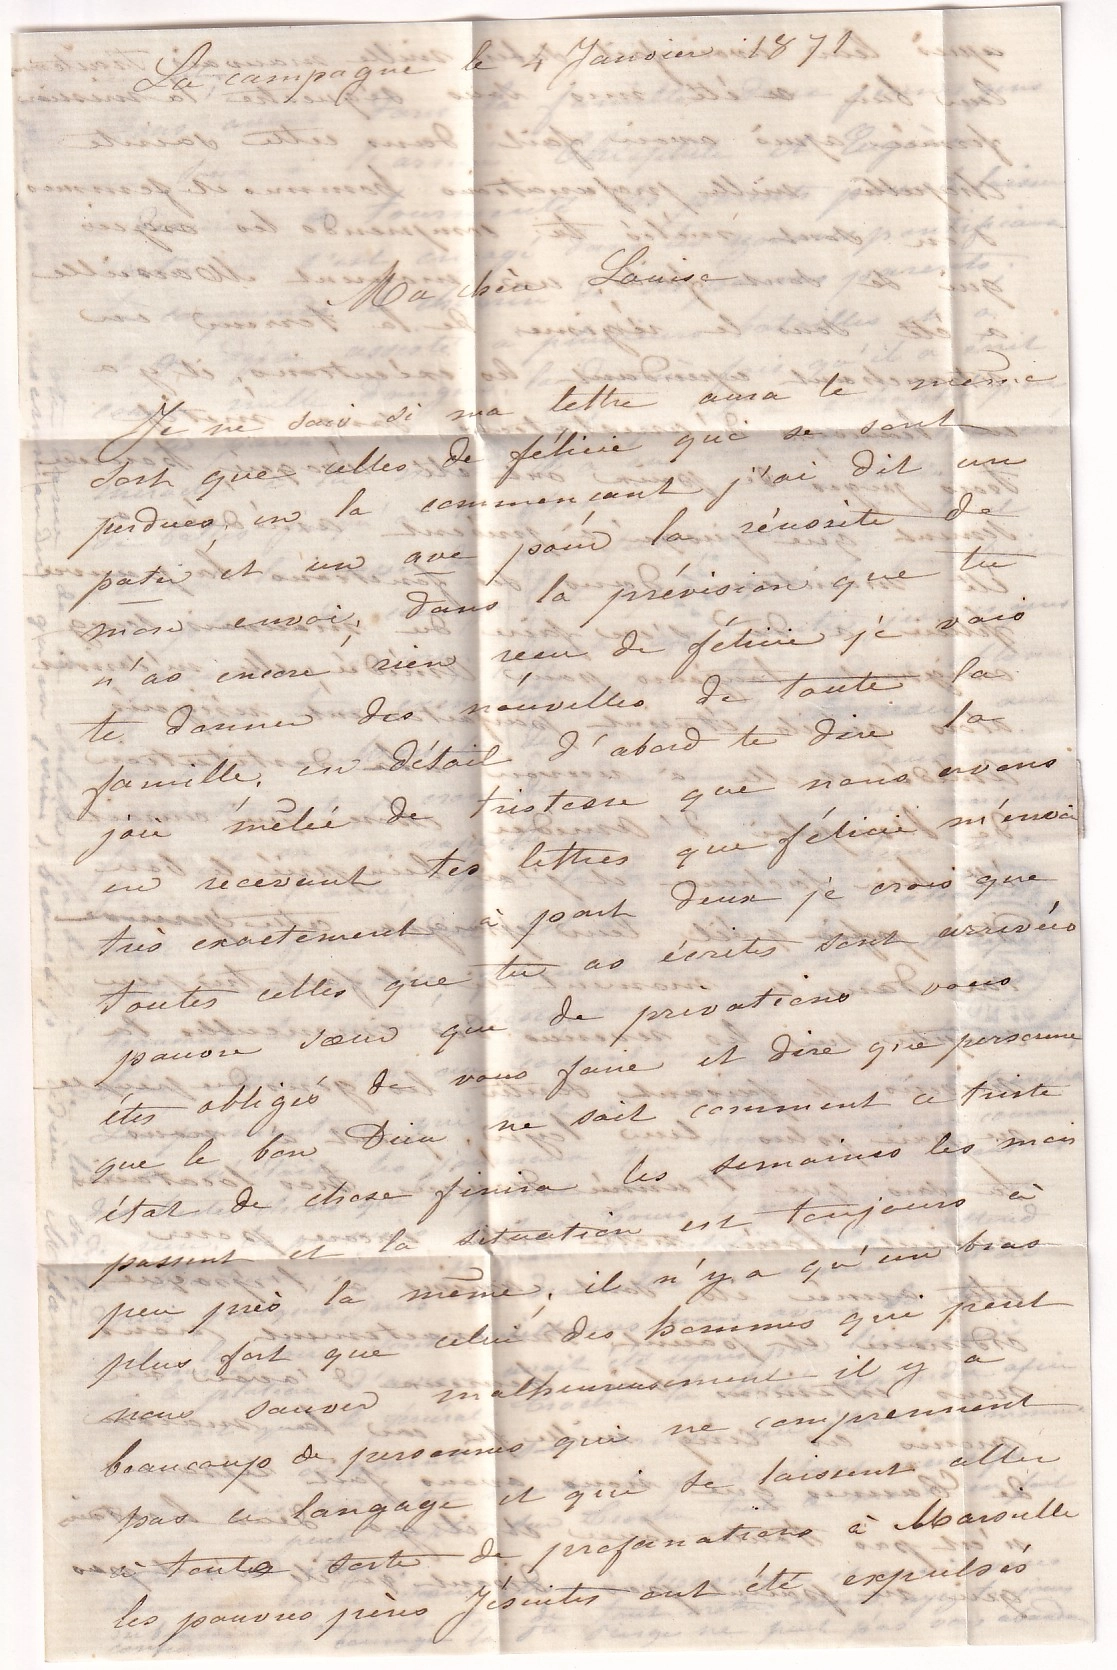 La campagne le 4 Janvier 1871
Ma chère Louise
Je ne sais si ma lettre aura le même
sort que celles de félicie qui se sont
perdues, en la commencant j'ai dit un
pater et un ave pour la réussite de
mon envoi, dans la prévision que tu
n'as encore rien recu de félicie je vais
te donner des nouvelles de toute la
famille, en détail d'abord te dire la
joie mêlée de tristesse que nous avons
en recevant tes lettres que félicie m'envoi
très exactement à part deux je crois que
toutes celles que tu as écrites sont arrivées
pauvre sœur que de privations vous
êtes obligés de vous faire et dire que personne
que le bon Dieu ne sait comment ce triste
état de chose finira les semaines les mois
passent et la situation est toujours à
peu près la même, il n'y a qu'un bras
plus fort que celui des hommes qui peut
nous sauver malheureusement il y a
beaucoup de personnes qui ne comprennent
pas ce langage et qui se laissent aller
à toutes sorte de profanations à Marseille
les pauvres pères Jésuites ont été expulsés